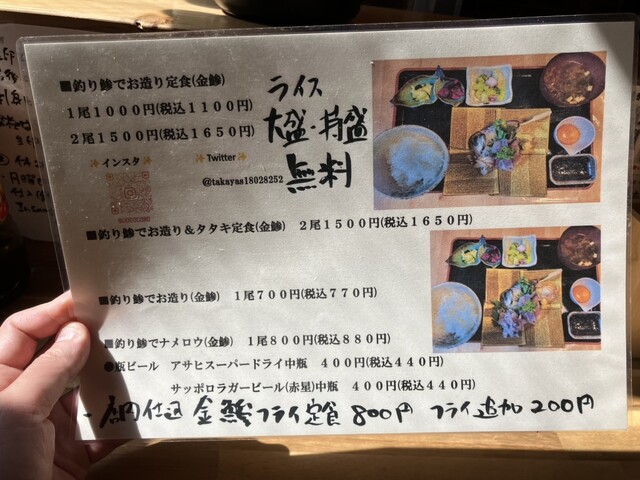 ■釣り鯵でお造り定食(金鯵)
1尾1000円(税込1100円)
2尾1500円(税込1650円)
ライス
大盛・特盛
無料
✨インスタ✨ ✨Twitter✨
@takayas18028252
■釣り鯵でお造り＆タタキ定食(金鯵) 2尾1500円(税込1650円)
■釣り鯵でお造り(金鯵) 1尾700円(税込770円)
■釣り鯵でナメロウ(金鯵) 1尾800円(税込880円)
●瓶ビール アサヒスーパードライ中瓶 400円(税込440円)
サッポロラガービール(赤星)中瓶 400円(税込440円)
仕込金鯵フライ定食800円 フライ追加200円